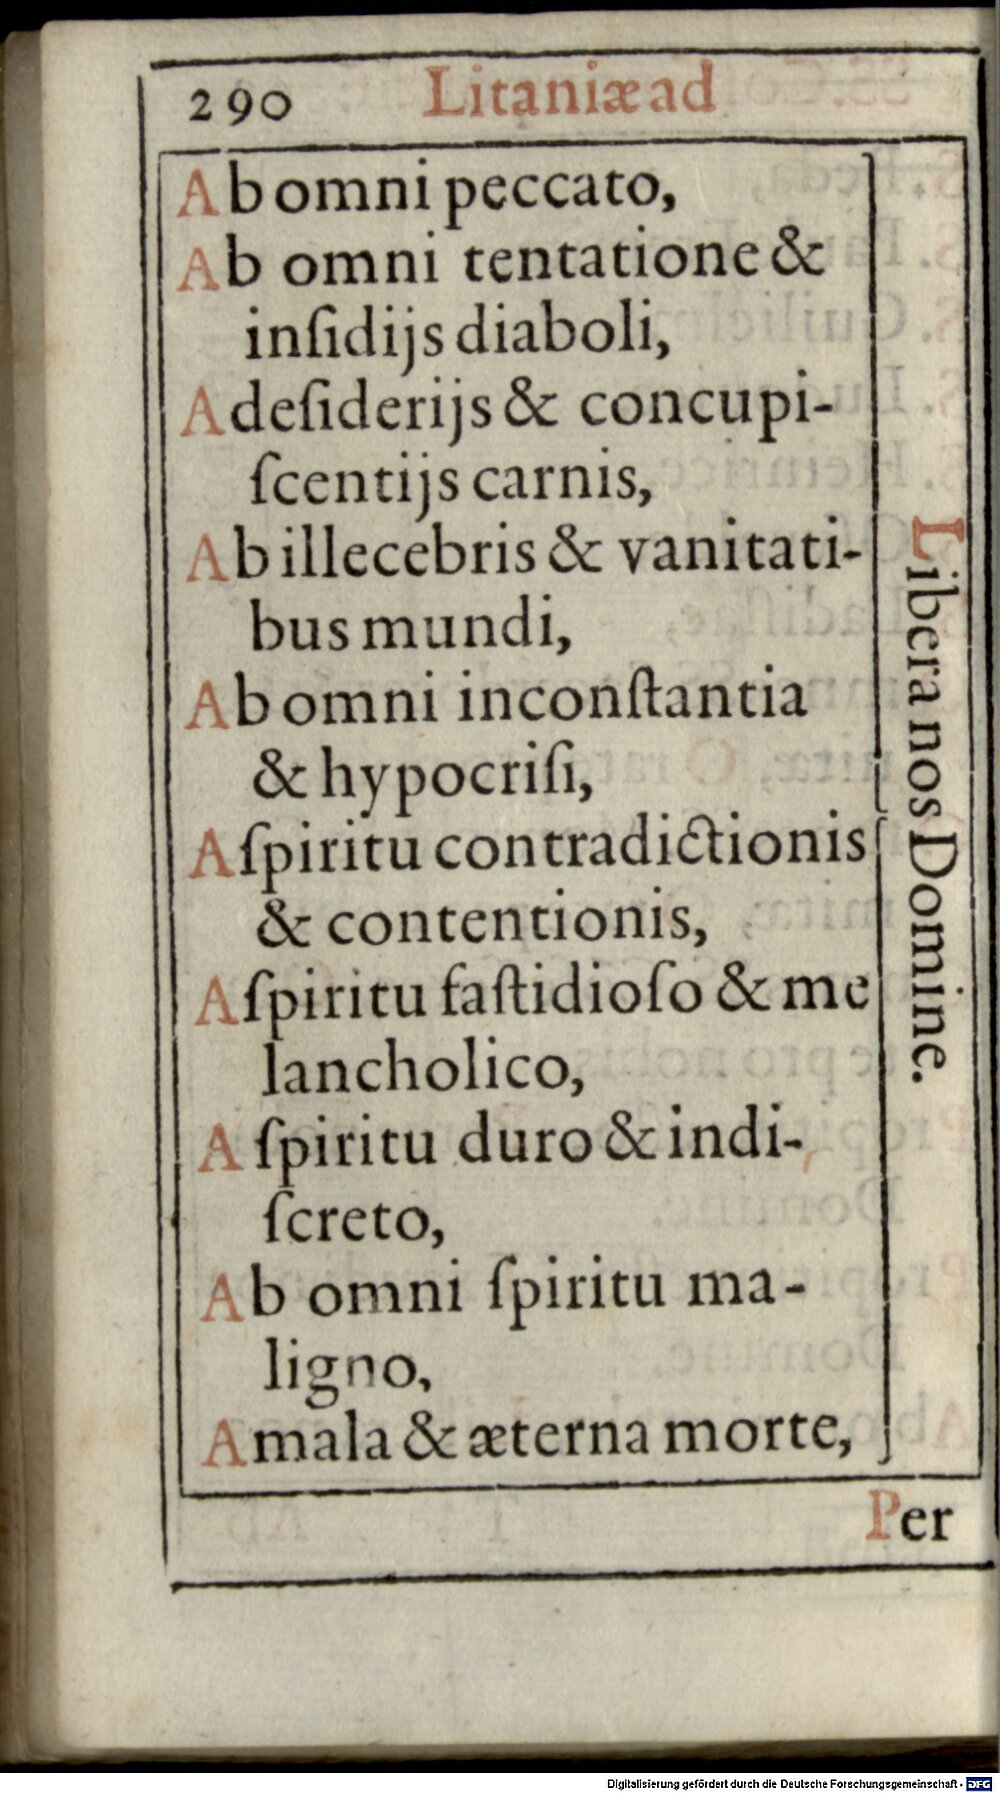 290 Litaniæ ad
Ab omni peccato,
Ab omni tentatione &
inſidijs diaboli,
A deſiderijs & concupi-
ſcentijs carnis,
Ab illecebris & vanitati-
bus mundi,
Ab omni inconſtantia
& hypocriſi,
A ſpiritu contradictionis
& contentionis,
A ſpiritu faſtidioſo & me
lancholico,
A ſpiritu duro & indi-
ſcreto,
Ab omni ſpiritu ma-
ligno,
A mala & æterna morte,
Libera nos Domine.
Per
Digitalisierung gefördert durch die Deutsche Forschungsgemeinschaft - DFG